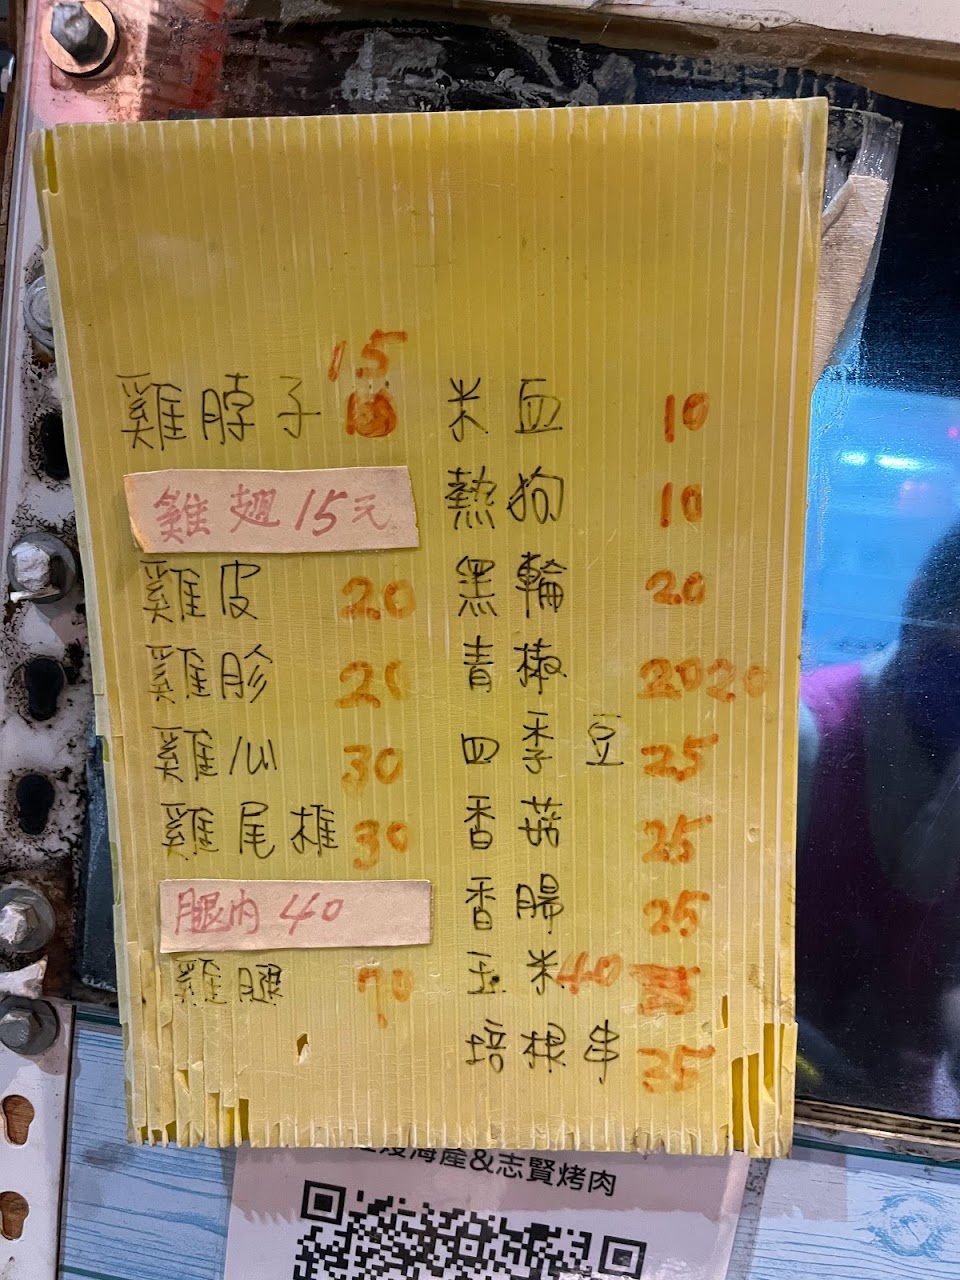 雞脖子 15
雞翅 15元
雞皮 20
雞胗 20
雞心 30
雞尾椎 30
腿肉 40
雞腿 70
米血 10
熱狗 10
黑輪 20
青椒 20 20
四季豆 25
香菇 25
香腸 25
玉米 40
培根串 35
海產&志賢烤肉